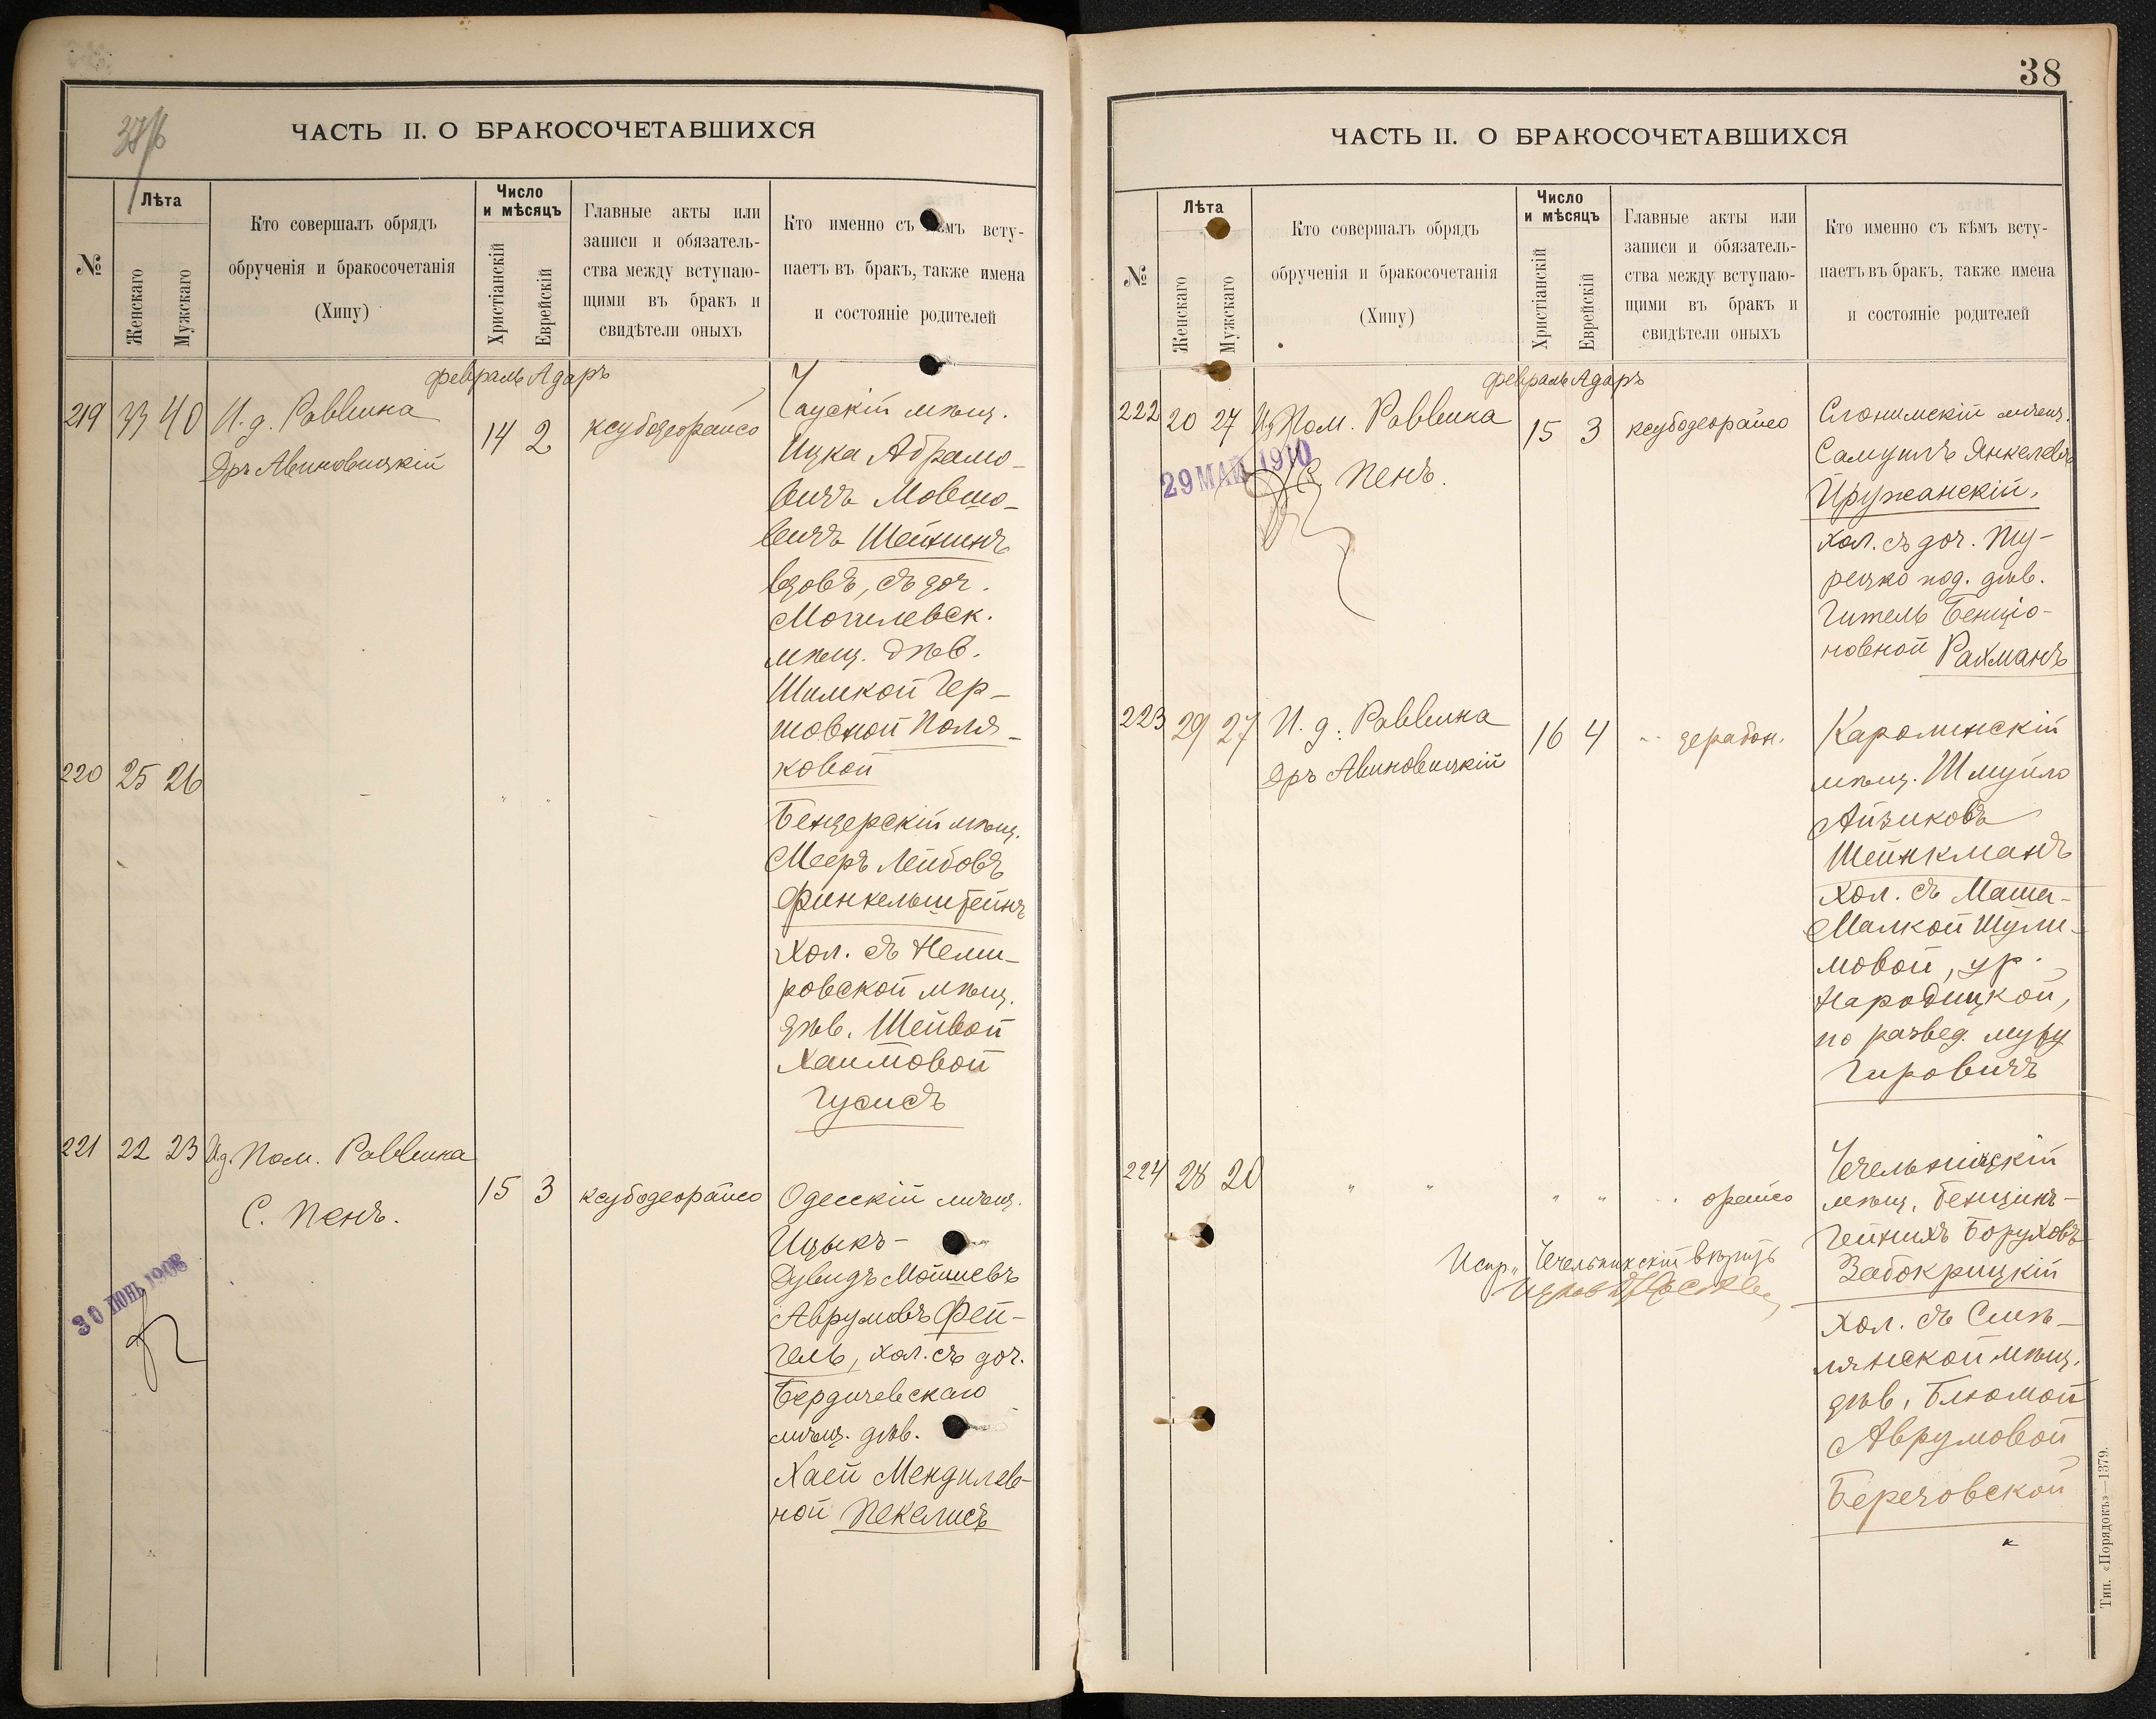 37/б
ЧАСТЬ II. О БРАКОСОЧЕТАВШИХСЯ
№
Лѣта
Женскаго
Мужскаго
Кто совершалъ обрядъ
обрученія и бракосочетанія
(Хипу)
Число
и мѣсяцъ
Христіанскій
Еврейскій
Главные акты или
записи и обязатель-
ства между вступаю-
щими въ бракъ и
свидѣтели оныхъ
Кто именно съ кѣмъ всту-
паетъ въ бракъ, также имена
и состояніе родителей
февраль Адаръ
219 33 40 И. д. Раввина
Дръ Авиновицкій
14 2 ксубодеорайсо
Чаускій мѣщ.
Ицка Абрамо-
вичъ Мовшо-
вичъ Шейнинъ
вдовъ, съ доч.
Могилевск.
мѣщ. дѣв.
Шимкой Гер-
шовной Поля-
ковой
220 25 26
Бендерскій мѣщ.
Мееръ Лейбовъ
Финкельштейнъ
Хол. съ Неми-
ровской мѣщ.
дѣв. Шейвой
Хаимовой
Гусисъ
221 22 23 Ид. Пом. Раввина
С. Пенъ.
15 3 ксубодеорайсо
30 ІЮНЬ 1908
Одесскій мѣщ.
Ицыкъ-
Дувидъ Мошиевъ
Аврумовъ Фей-
гель, хол. съ доч.
Бердичевскаго
мѣщ. дѣв.
Хаей Мендилев-
ной Пекелисъ
38
ЧАСТЬ II. О БРАКОСОЧЕТАВШИХСЯ
№
Лѣта
Женскаго
Мужскаго
Кто совершалъ обрядъ
обрученія и бракосочетанія
(Хипу)
Число
и мѣсяцъ
Христіанскій
Еврейскій
Главные акты или
записи и обязатель-
ства между вступаю-
щими въ бракъ и
свидѣтели оныхъ
Кто именно съ кѣмъ всту-
паетъ въ бракъ, также имена
и состояніе родителей
февраль Адаръ
222 20 27 Ид Пом. Раввина
С. Пенъ.
15 3 ксубодеорайсо
29 МАЙ 1910
Слонимскій мѣщ.
Самуилъ Янкелевъ
Пружанскій,
хол. съ доч. Ту-
рецко под. дѣв.
Гитель Бенціо-
новной Рахманъ
223 29 27 И. д. Раввина
Дръ Авиновицкій
16 4 " дерабон.
Каролинскій
мѣщ. Шмуйло
Айзиковъ
Шейнкманъ
Хол. съ Маша-
Малкой Шули-
мовой, ур.
Народицкой,
по развед. мужу
Гировичъ
224 28 20 " " " " " орайсо
Чечельницкій
мѣщ. Бенціинъ-
Гейнихъ Боруховъ
Забокрицкій
хол. съ Смѣ-
лянской мѣщ.
дѣв. Блюмой
Аврумовой
Береговской
Испр. Чечельникскій вѣрить
Тип. «Порядокъ»—1379.